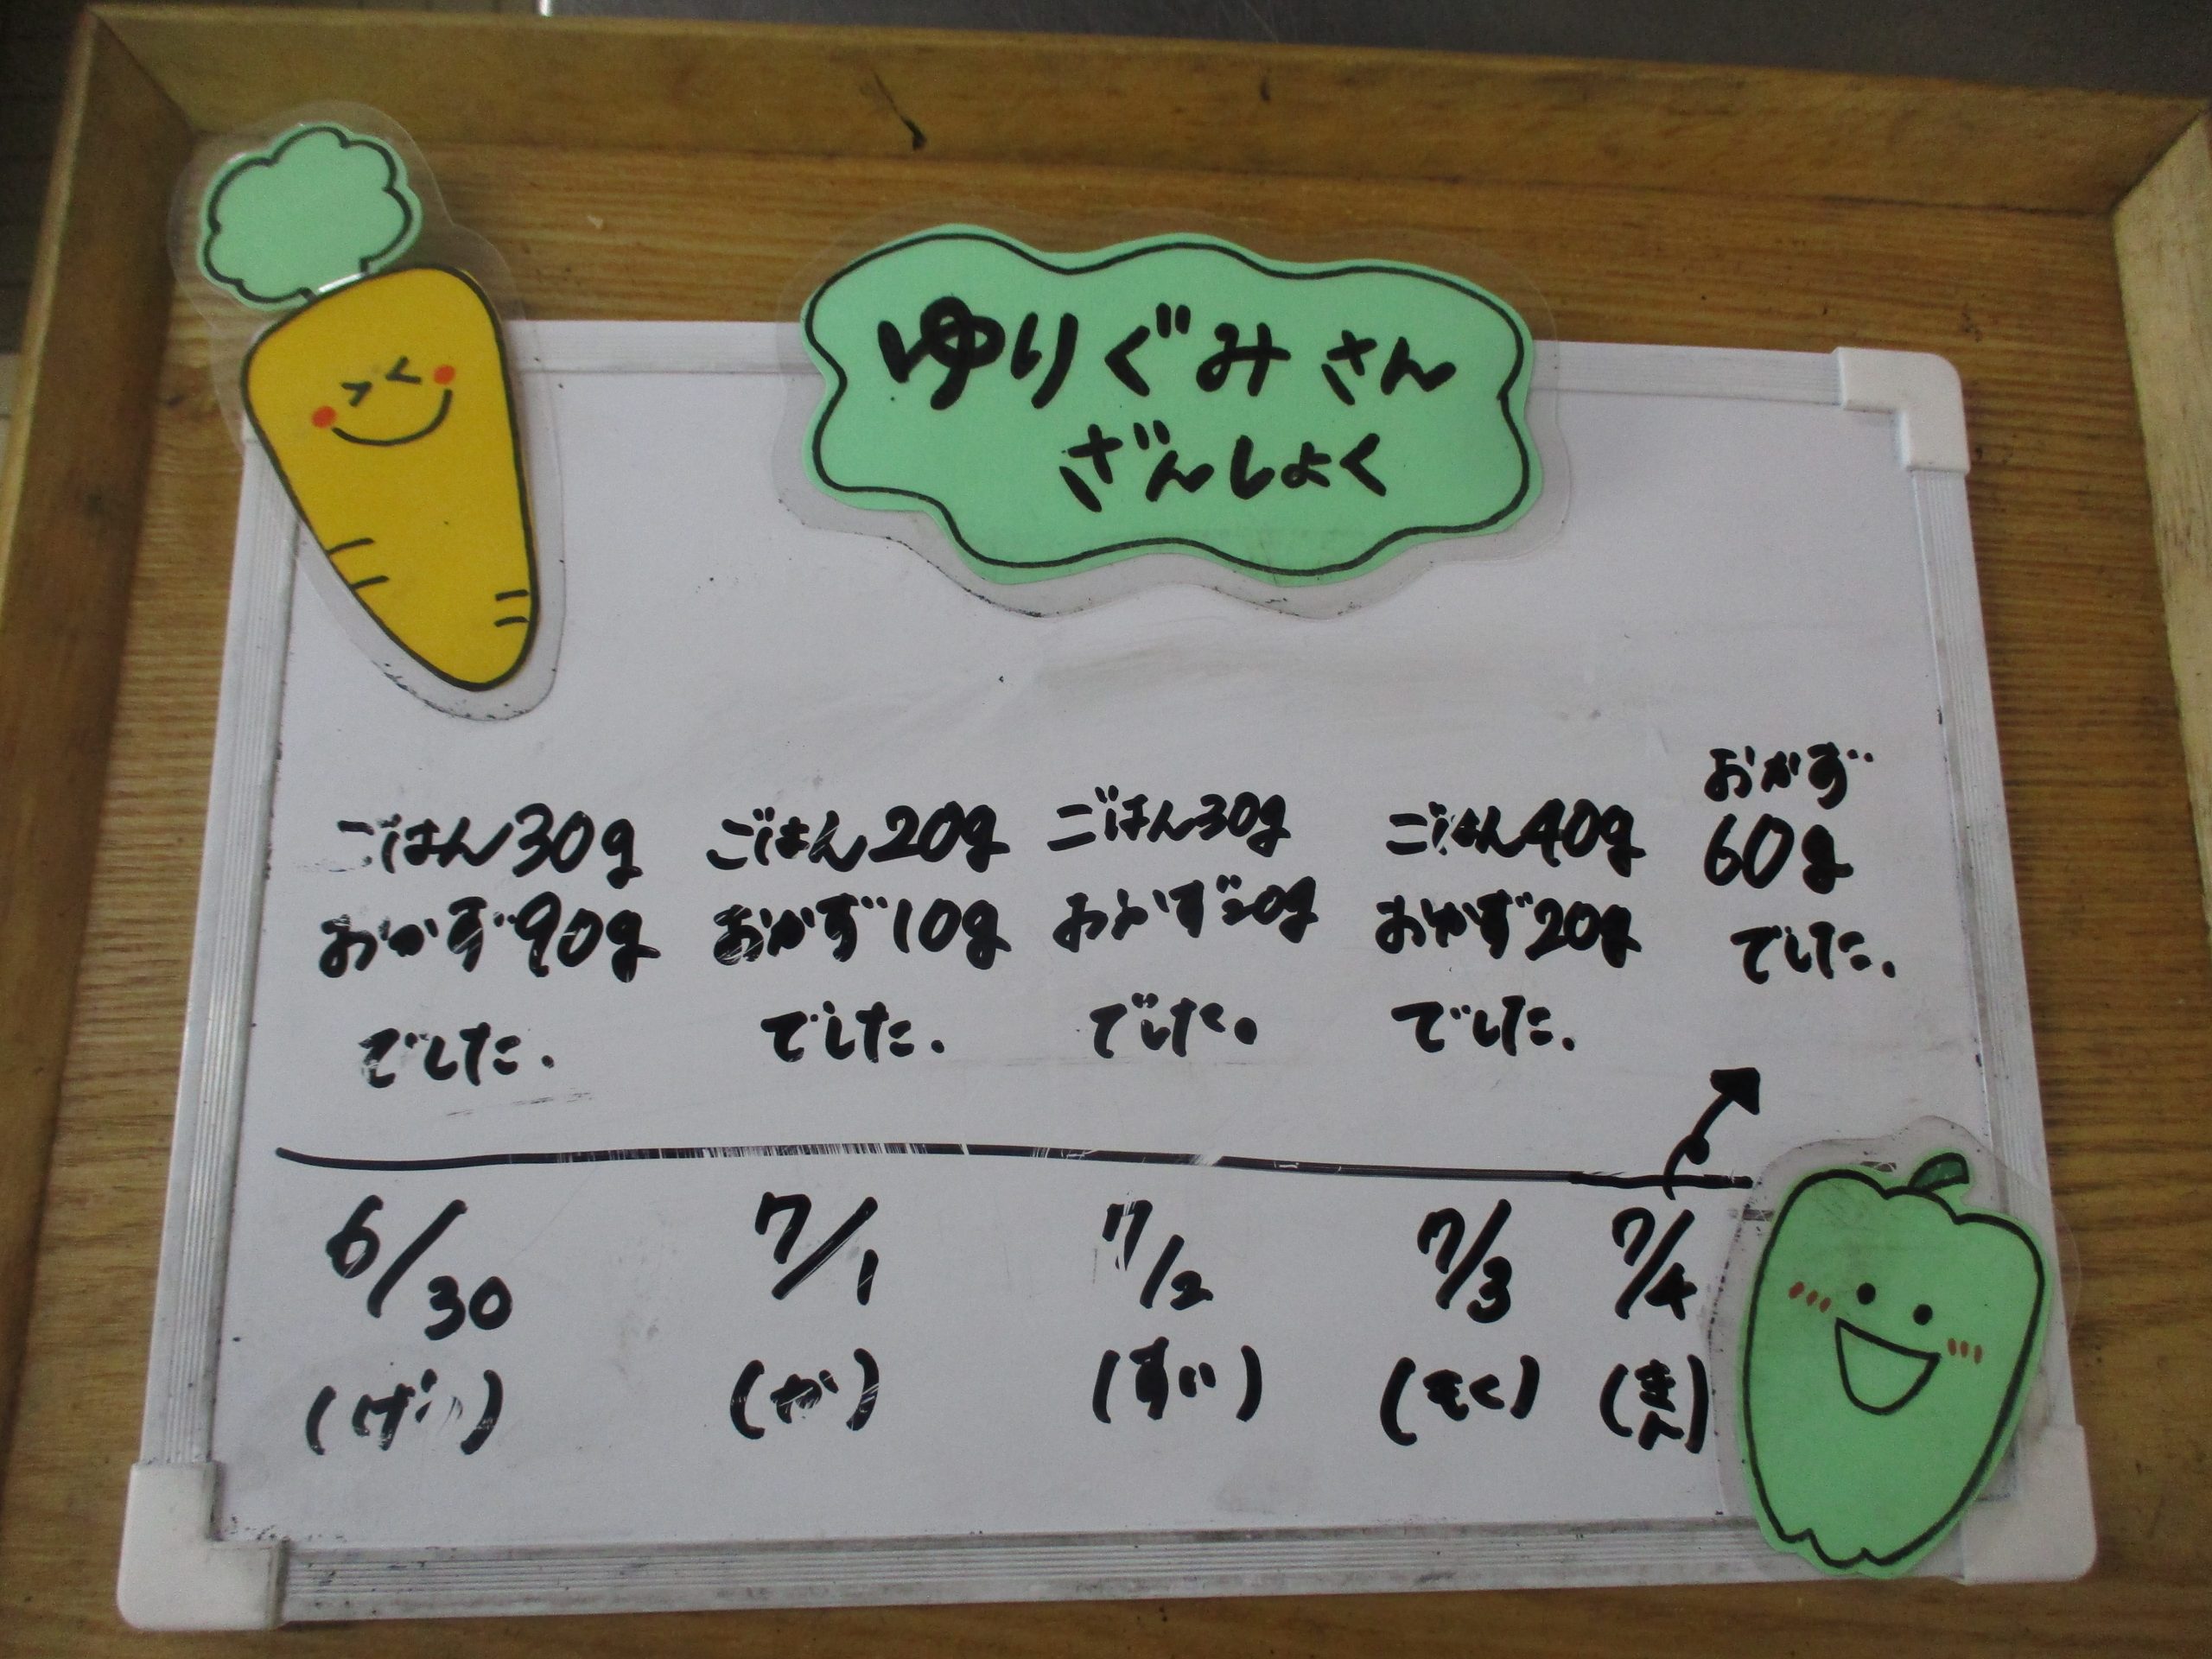 ゆりぐみさん
ざんしょく
ごはん30g
おかず90g
でした.
ごはん20g
おかず10g
でした.
ごはん30g
おかず20g
でした。
ごはん40g
おかず20g
でした.
おかず
60g
でした.
6/30
(げつ)
7/1
(か)
7/2
(すい)
7/3
(もく)
7/4
(きん)